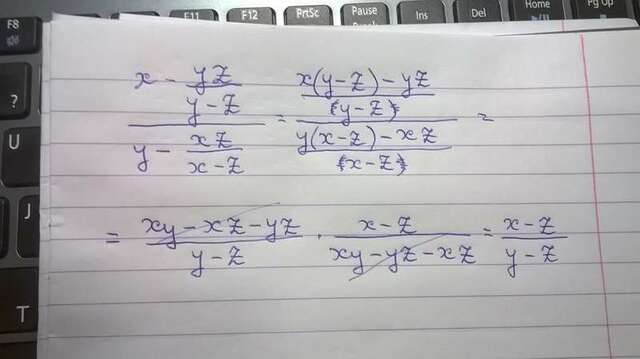 F8 F11 F12 PrtSc Pause Ins Del Home Pg Up
?
U
J
T
x - yz
y - z
y - xz
x - z
= x(y-z) - yz
(y-z)
y(x-z) - xz
(x-z)
=
= xy - xz - yz
y - z
· x - z
xy - yz - xz
= x - z
y - z